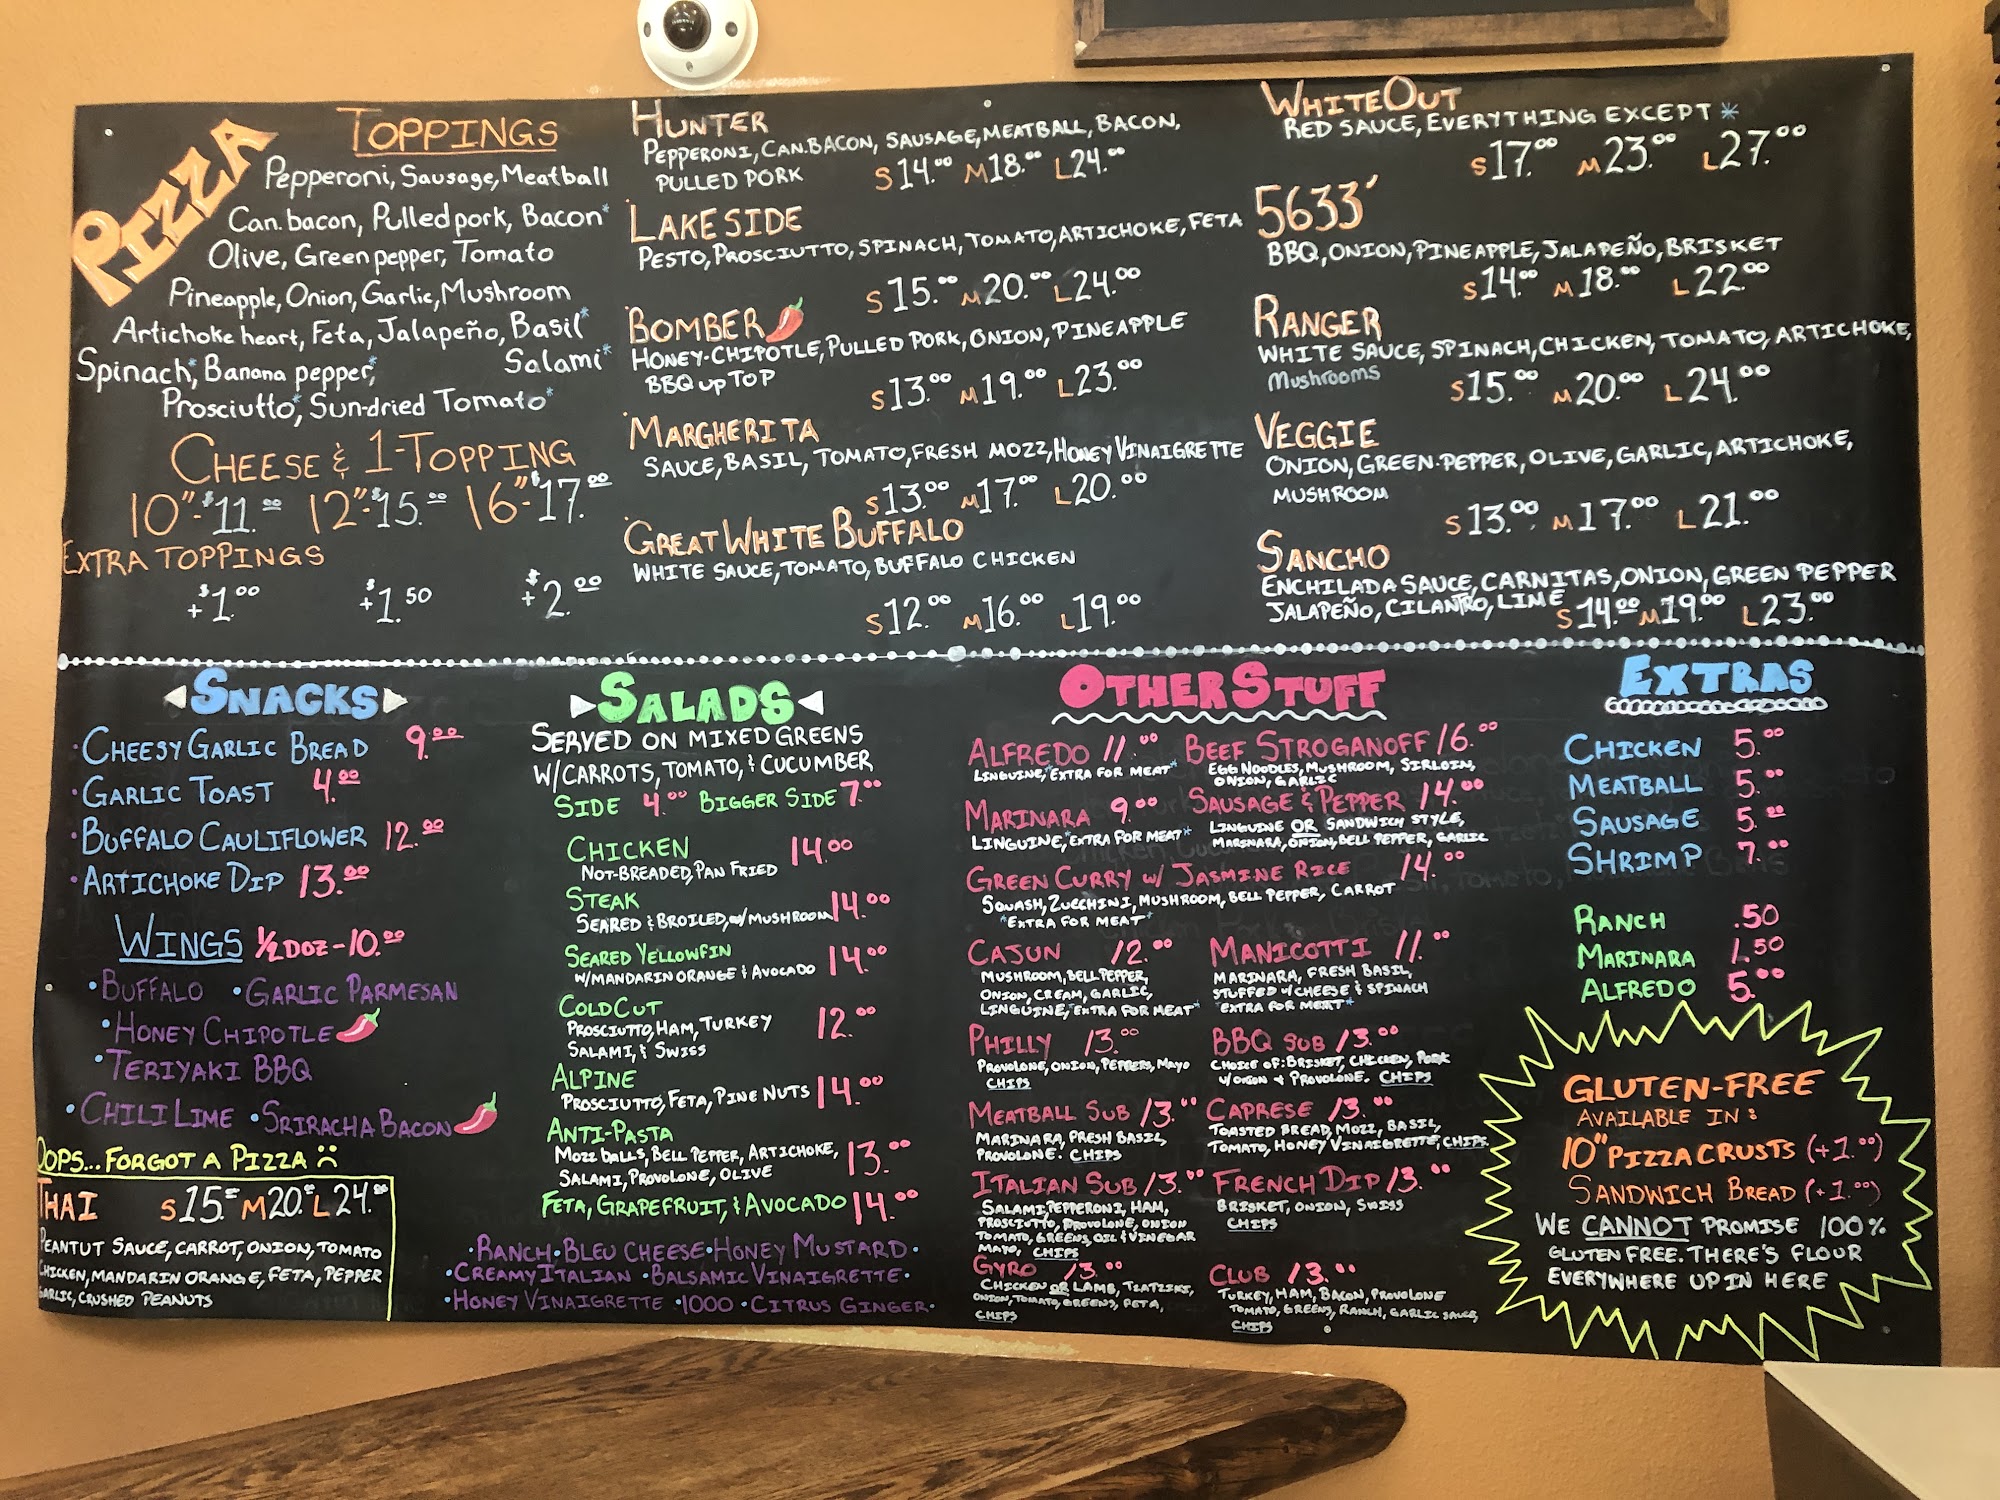 PIZZA
TOPPINGS
Pepperoni, Sausage, Meatball
Can. bacon, Pulled pork, Bacon*
Olive, Green pepper, Tomato
Pineapple, Onion, Garlic, Mushroom
Artichoke heart, Feta, Jalapeño, Basil*
Spinach*, Banana pepper*, Salami*
Prosciutto*, Sun-dried Tomato*
CHEESE & 1-TOPPING
10"-$11.00 12"-$15.00 16"-$17.00
EXTRA TOPPINGS
+$1.00 +$1.50 +$2.00
HUNTER
PEPPERONI, CAN. BACON, SAUSAGE, MEATBALL, BACON,
PULLED PORK S 14.00 M 18.00 L 24.00
LAKESIDE
PESTO, PROSCIUTTO, SPINACH, TOMATO, ARTICHOKE, FETA
S 15.00 M 20.00 L 24.00
BOMBER
HONEY-CHIPOTLE, PULLED PORK, ONION, PINEAPPLE
BBQ up TOP
S 13.00 M 19.00 L 23.00
MARGHERITA
SAUCE, BASIL, TOMATO, FRESH MOZZ, HONEY VINAIGRETTE
S 13.00 M 17.00 L 20.00
GREAT WHITE BUFFALO
WHITE SAUCE, TOMATO, BUFFALO CHICKEN
S 12.00 M 16.00 L 19.00
WHITEOUT
RED SAUCE, EVERYTHING EXCEPT *
S 17.00 M 23.00 L 27.00
5633'
BBQ, ONION, PINEAPPLE, JALAPEÑO, BRISKET
S 14.00 M 18.00 L 22.00
RANGER
WHITE SAUCE, SPINACH, CHICKEN, TOMATO, ARTICHOKE,
Mushrooms S 15.00 M 20.00 L 24.00
VEGGIE
ONION, GREEN-PEPPER, OLIVE, GARLIC, ARTICHOKE,
MUSHROOM
S 13.00 M 17.00 L 21.00
SANCHO
ENCHILADA SAUCE, CARNITAS, ONION, GREEN PEPPER
JALAPEÑO, CILANTRO, LIME S 14.00 M 19.00 L 23.00
SNACKS
·CHEESY GARLIC BREAD 9.00
·GARLIC TOAST 4.00
·BUFFALO CAULIFLOWER 12.00
·ARTICHOKE DIP 13.00
WINGS 1/2 DOZ-10.00
·BUFFALO ·GARLIC PARMESAN
·HONEY CHIPOTLE
·TERIYAKI BBQ
·CHILI LIME ·SRIRACHA BACON
OOPS... FORGOT A PIZZA
THAI S 15.00 M 20.00 L 24.00
PEANTUT SAUCE, CARROT, ONION, TOMATO
CHICKEN, MANDARIN ORANGE, FETA, PEPPER
GARLIC, CRUSHED PEANUTS
SALADS
SERVED ON MIXED GREENS
W/CARROTS, TOMATO, & CUCUMBER
SIDE 4.00 BIGGER SIDE 7.00
CHICKEN 14.00
NOT-BREADED, PAN FRIED
STEAK 14.00
SEARED & BROILED, w/ MUSHROOM
SEARED YELLOWFIN 14.00
W/MANDARIN ORANGE & AVOCADO
COLD CUT 12.00
PROSCIUTTO, HAM, TURKEY
SALAMI, & SWISS
ALPINE 14.00
PROSCIUTTO, FETA, PINE NUTS
ANTI-PASTA 13.00
MOZZ BALLS, BELL PEPPER, ARTICHOKE,
SALAMI, PROVOLONE, OLIVE
FETA, GRAPEFRUIT, & AVOCADO 14.00
·RANCH·BLEU CHEESE·HONEY MUSTARD·
·CREAMY ITALIAN·BALSAMIC VINAIGRETTE·
·HONEY VINAIGRETTE·1000·CITRUS GINGER·
OTHER STUFF
ALFREDO 11.00
LINGUINE, *EXTRA FOR MEAT*
BEEF STROGANOFF 16.00
EGG NOODLES, MUSHROOM, SIRLOIN,
ONION, GARLIC
MARINARA 9.00
LINGUINE, *EXTRA FOR MEAT*
SAUSAGE & PEPPER 14.00
LINGUINE OR SANDWICH STYLE,
MARINARA, ONION, BELL PEPPER, GARLIC
GREEN CURRY w/ JASMINE RICE 14.00
SQUASH, ZUCCHINI, MUSHROOM, BELL PEPPER, CARROT
*EXTRA FOR MEAT*
CAJUN 12.00
MUSHROOM, BELL PEPPER,
ONION, CREAM, GARLIC,
LINGUINE, *EXTRA FOR MEAT*
MANICOTTI 11.00
MARINARA, FRESH BASIL,
STUFFED w/ CHEESE & SPINACH
*EXTRA FOR MEAT*
PHILLY 13.00
PROVOLONE, ONION, PEPPERS, MAYO
CHIPS
BBQ SUB 13.00
CHOICE OF: BRISKET, CHICKEN, PORK
W/ ONION & PROVOLONE. CHIPS
MEATBALL SUB 13.00
MARINARA, FRESH BASIL,
PROVOLONE. CHIPS
CAPRESE 13.00
TOASTED BREAD, MOZZ, BASIL,
TOMATO, HONEY VINAIGRETTE, CHIPS
ITALIAN SUB 13.00
SALAMI, PEPPERONI, HAM,
PROSCIUTTO, PROVOLONE, ONION
TOMATO, GREENS, OIL & VINEGAR
MAYO, CHIPS
FRENCH DIP 13.00
BRISKET, ONION, SWISS
CHIPS
GYRO 13.00
CHICKEN OR LAMB, TZATZIKI,
ONION, TOMATO, GREENS, FETA,
CHIPS
CLUB 13.00
TURKEY, HAM, BACON, PROVOLONE
TOMATO, GREENS, RANCH, GARLIC SAUCE,
CHIPS
EXTRAS
CHICKEN 5.00
MEATBALL 5.00
SAUSAGE 5.00
SHRIMP 7.00
RANCH .50
MARINARA 1.50
ALFREDO 5.00
GLUTEN-FREE
AVAILABLE IN:
10" PIZZA CRUSTS (+1.00)
SANDWICH BREAD (+1.00)
WE CANNOT PROMISE 100%
GLUTEN FREE. THERE'S FLOUR
EVERYWHERE UP IN HERE